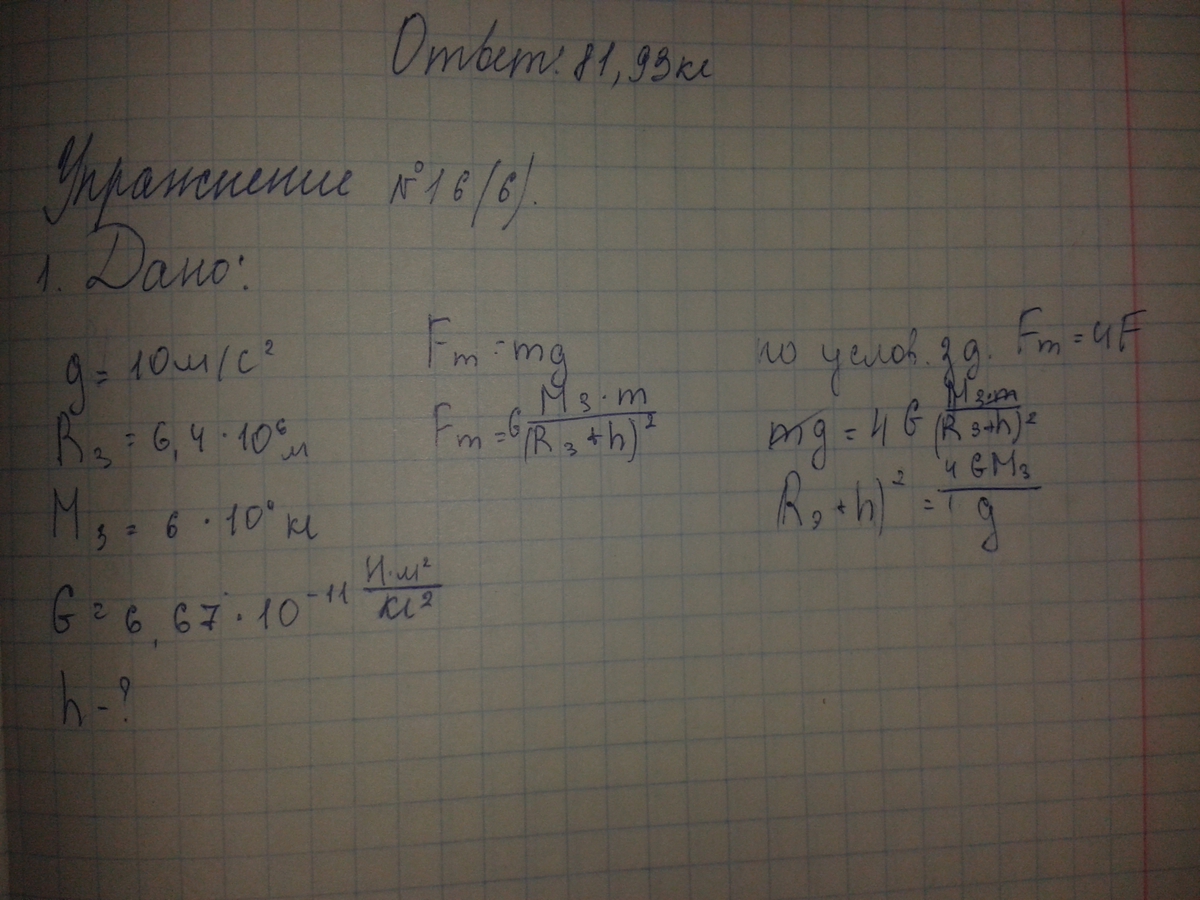 Ответ: 81,93кг
Упражнение №16(6).
1. Дано:
g = 10м/с²
R₃ = 6,4 · 10⁶м
M₃ = 6 · 10°кг
G = 6,67 · 10⁻¹¹ Н·м²/кг²
h - ?
Fт = mg
Fт = G M₃·m/(R₃+h)²
по услов. зд. Fт = 4F
mg = 4 G M₃·m/(R₃+h)²
(R₃+h)² = 4GM₃/g